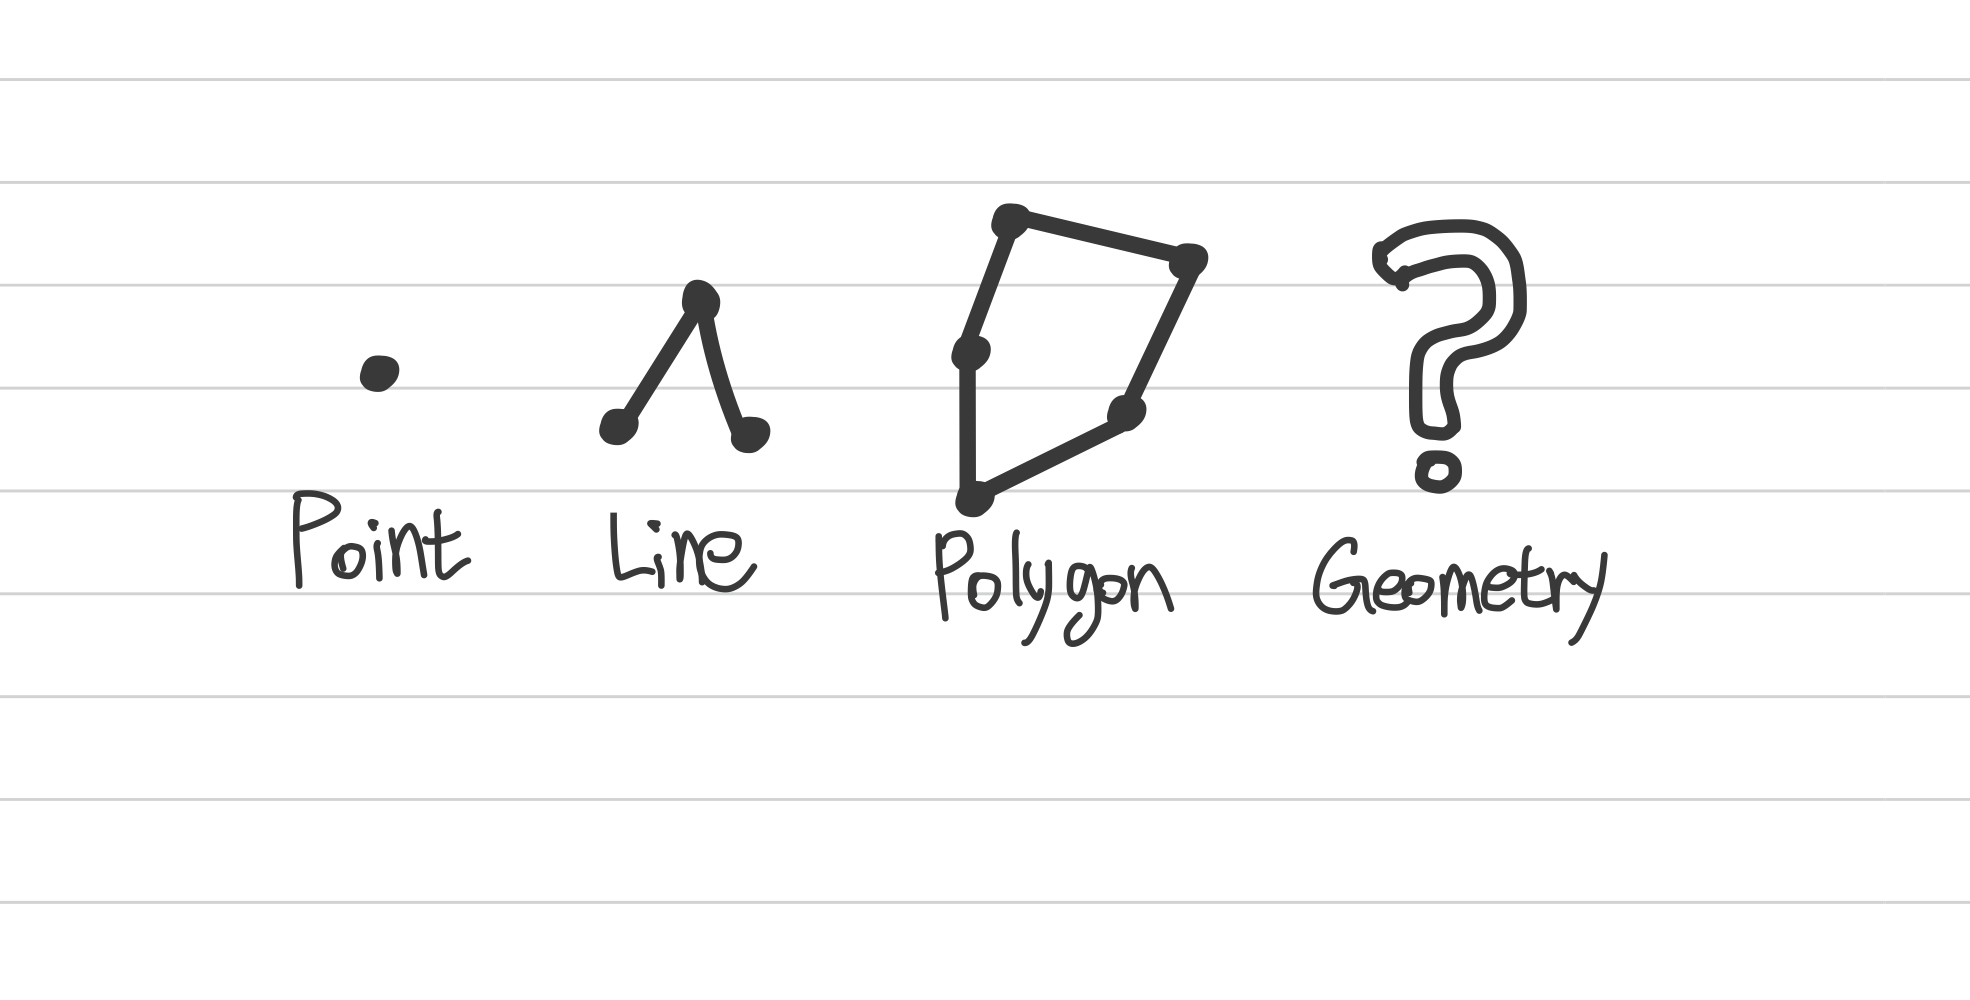 Point Line Polygon Geometry